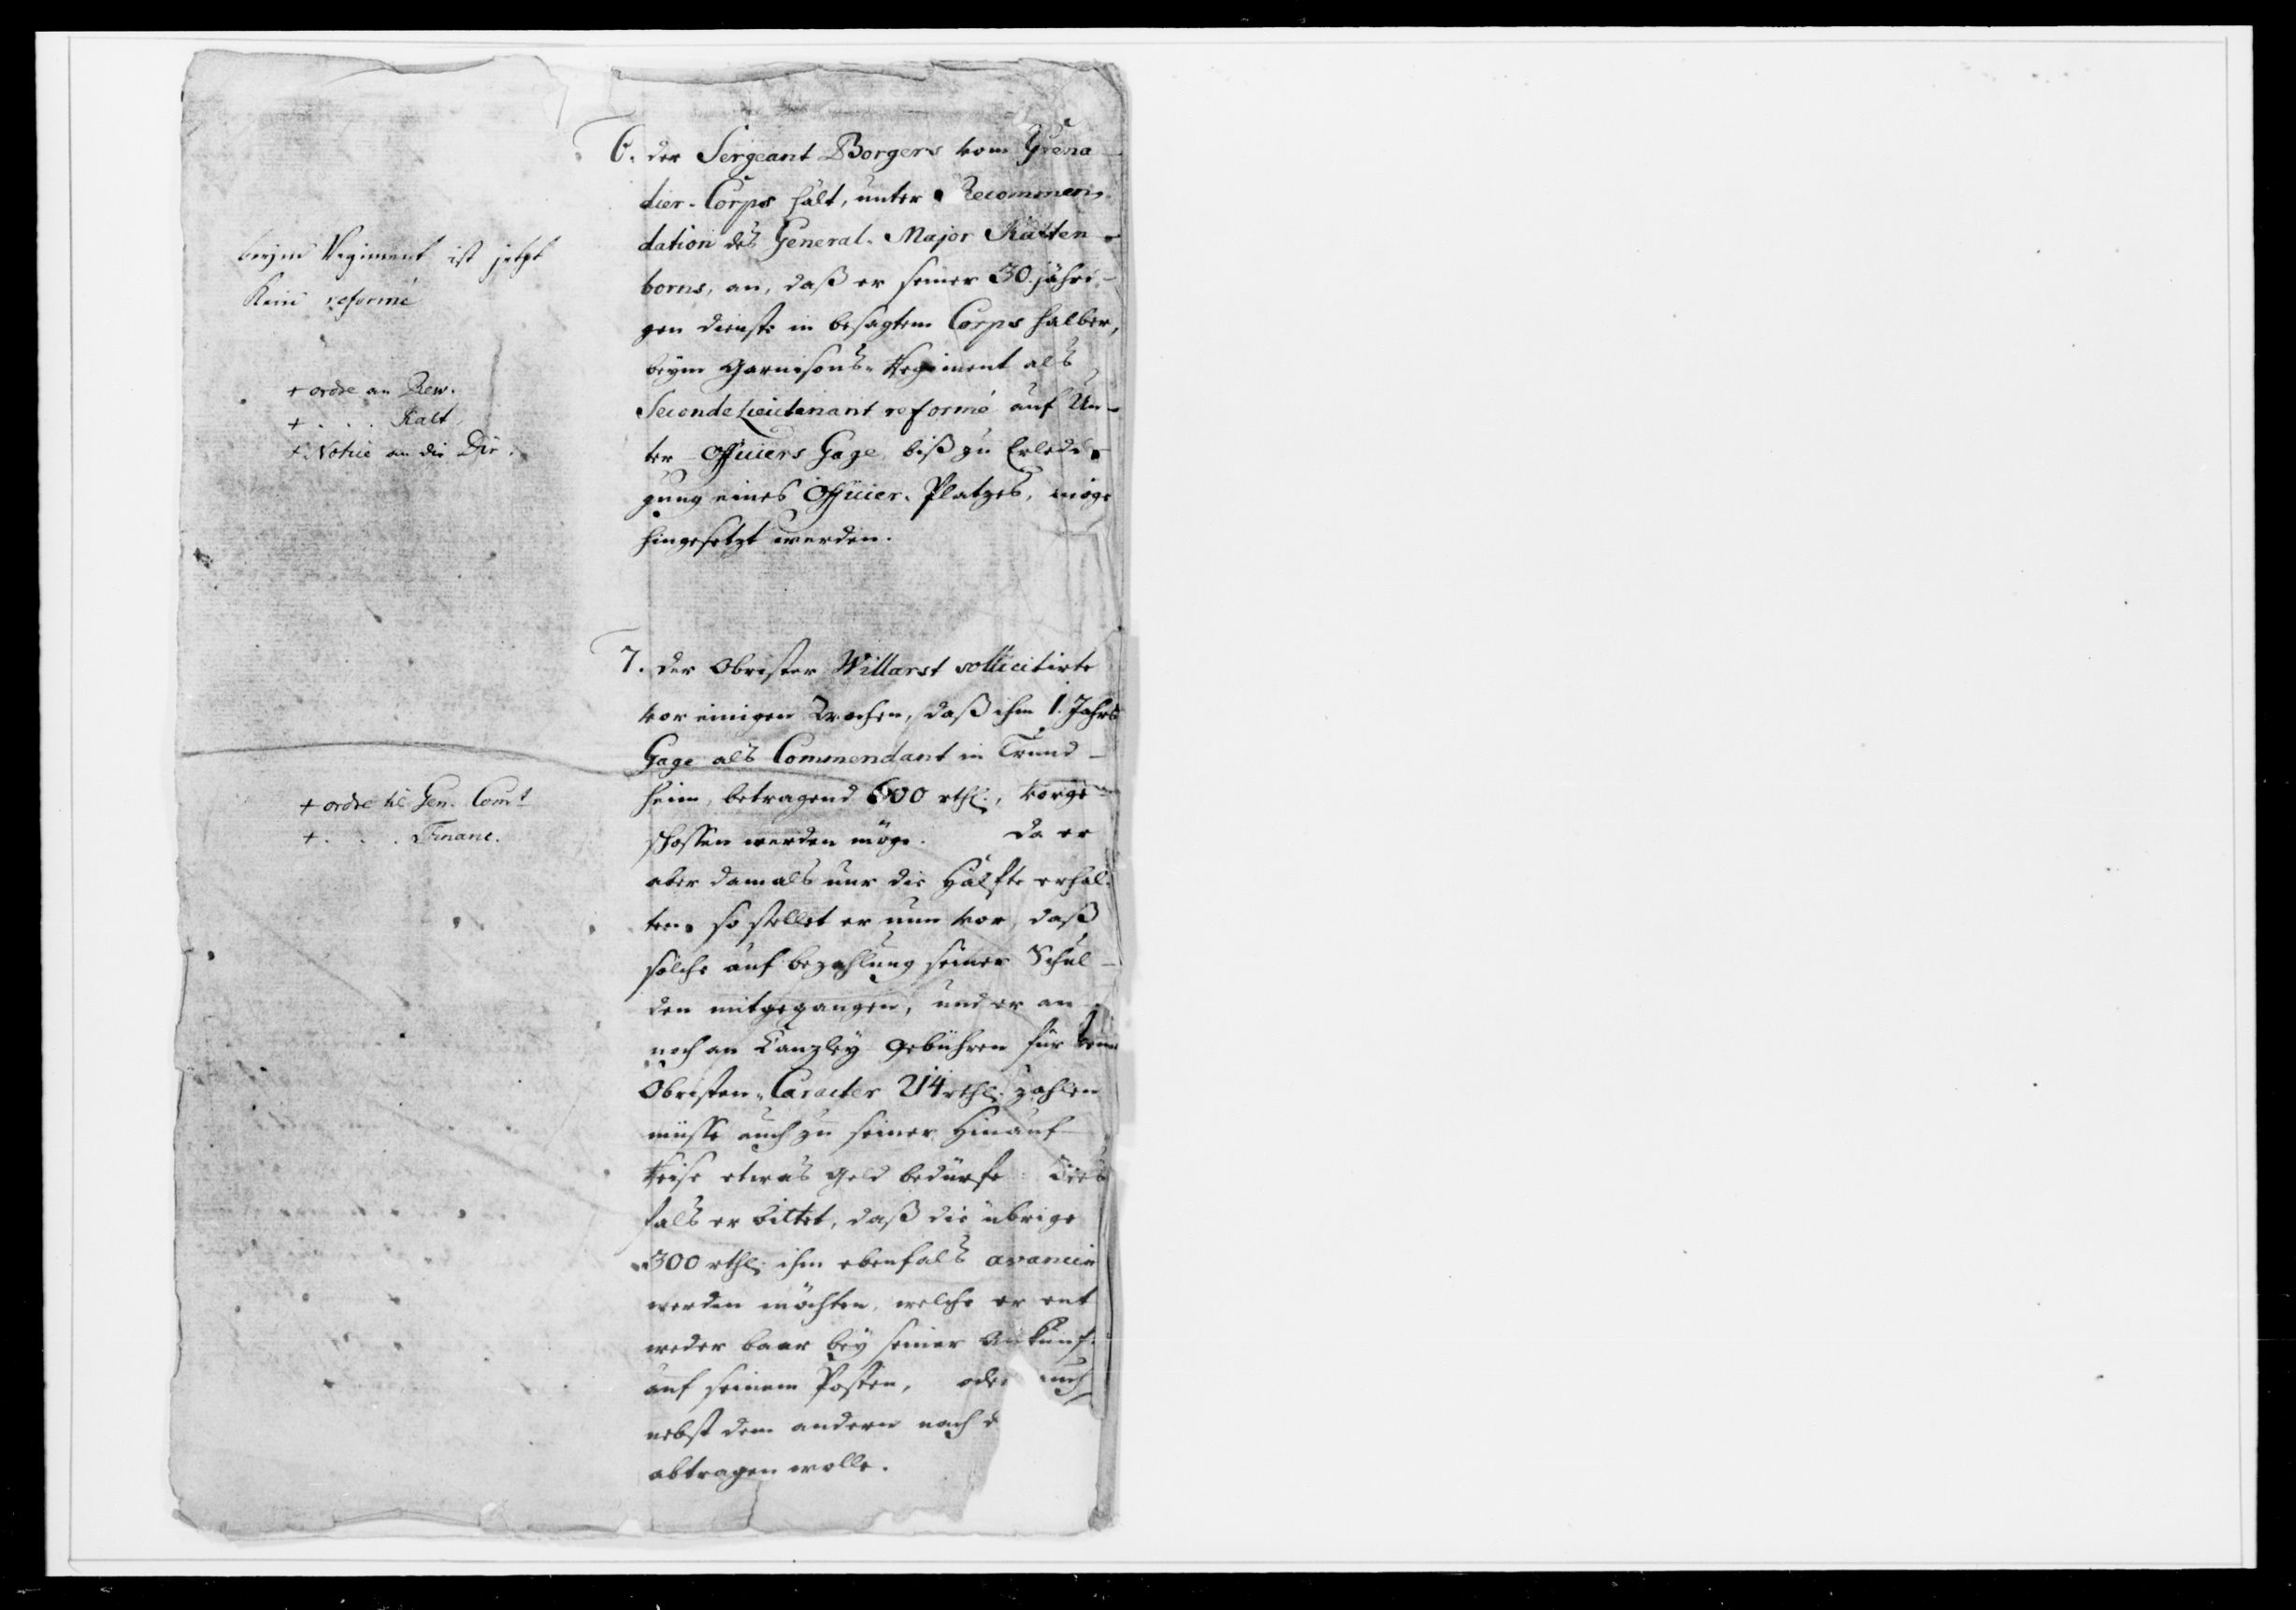 6. der Sergeant Borgers vom Grena-
dier-Corps hält, unter Recommen-
dation des General-Major Kalten-
borns, an, daß er seiner 30. jähri-
gen dienste in besagtem Corps halber,
beym Garnisons-Regiment als
Seconde Lieutenant reformé auf Un-
ter-Officiers Gage, biß zu Erledi-
gung eines Officier-Platzes, möge
hingesetzt werden.
beym Regiment ist jetzt
Kein reformé
+ ordre an Rew.
+ . . . Kalt
+ Notice an die Dir.
7. der Obrister Willarst sollicitirte
vor einigen Wochen, daß ihm 1. Jahrs
Gage als Commendant in Trund-
heim, betragend 600 rthl., vorge-
schossen werden möge. Da er
aber damals nur die Hälfte erhal-
ten, so stellet er nun vor, daß
solche auf bezahlung seiner Schul-
den mitgegangen, und er an-
noch an Canzley Gebühren für
Obristen-Caracter 214 rthl. zahlen
müsse auch zu seiner Hinauf-
Reise etwas Geld bedürfe: Dies-
fals er bittet, daß die übrige
300 rthl. ihm ebenfals avancir
werden möchten, welche er ent
weder baar bey seiner Ankunf
auf seinem Posten, oder auch
nebst dem andern nach d
abtragen wolle.
+ ordre til Gen. Comt
+ . . . Financ.